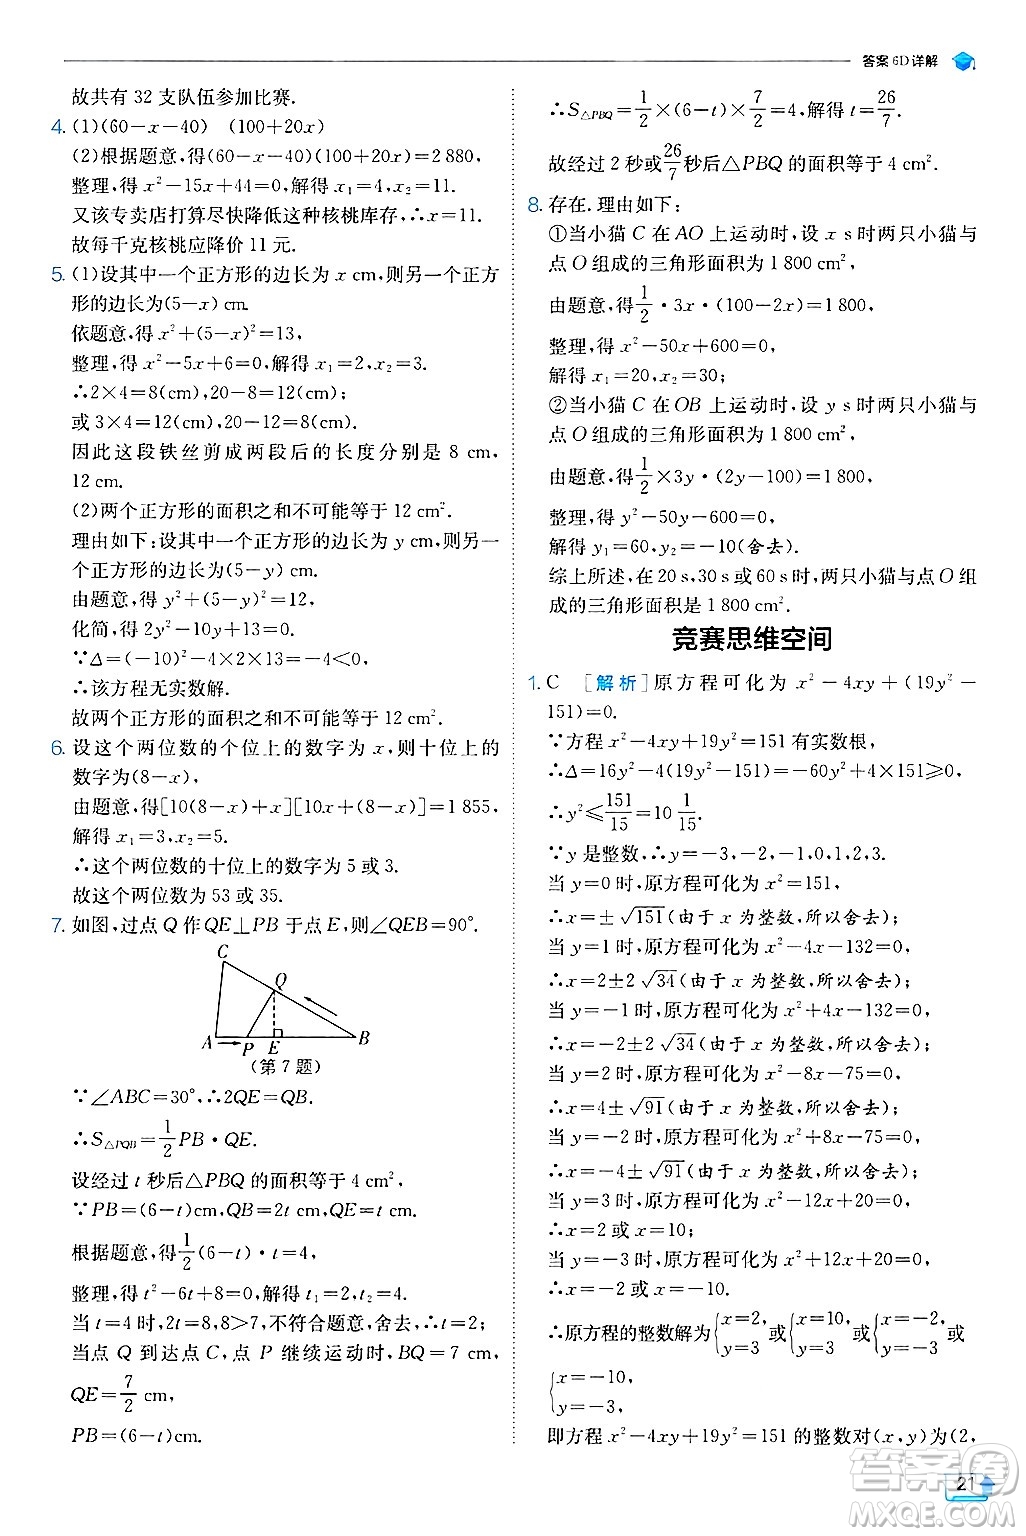 答案 6D 详解
故共有 32 支队伍参加比赛.
4. (1)(60-x-40) (100+20x)
(2)根据题意,得(60-x-40)(100+20x)=2 880,
整理,得 x²-15x+44=0,解得 x₁=4,x₂=11.
又该专卖店打算尽快降低这种核桃库存,∴x=11.
故每千克核桃应降价 11 元.
5. (1)设其中一个正方形的边长为 x cm,则另一个正方
形的边长为(5-x) cm.
依题意,得 x²+(5-x)²=13,
整理,得 x²-5x+6=0,解得 x₁=2,x₂=3.
∴2×4=8(cm),20-8=12(cm);
或 3×4=12(cm),20-12=8(cm).
因此这段铁丝剪成两段后的长度分别是 8 cm,
12 cm.
(2)两个正方形的面积之和不可能等于 12 cm².
理由如下:设其中一个正方形的边长为 y cm,则另一
个正方形的边长为(5-y) cm.
由题意,得 y²+(5-y)²=12,
化简,得 2y²-10y+13=0.
∵Δ=(-10)²-4×2×13=-4<0,
∴该方程无实数解.
故两个正方形的面积之和不可能等于 12 cm².
6. 设这个两位数的个位上的数字为 x,则十位上的
数字为(8-x),
由题意,得[10(8-x)+x][10x+(8-x)]=1 855,
解得 x₁=3,x₂=5.
∴这个两位数的十位上的数字为 5 或 3.
故这个两位数为 53 或 35.
7. 如图,过点 Q 作 QE⊥PB 于点 E,则∠QEB=90°.
C
Q
A P E B
(第 7 题)
∵∠ABC=30°,∴2QE=QB.
∴S△PQB=1/2 PB·QE.
设经过 t 秒后△PBQ 的面积等于 4 cm²,
∵PB=(6-t)cm,QB=2t cm,QE=t cm.
根据题意,得1/2(6-t)·t=4,
整理,得 t²-6t+8=0,解得 t₁=2,t₂=4.
当 t=4 时,2t=8,8>7,不符合题意,舍去,∴t=2;
当点 Q 到达点 C,点 P 继续运动时,BQ=7 cm,
QE=7/2 cm,
PB=(6-t)cm.
∴S△PBQ=1/2×(6-t)×7/2=4,解得 t=26/7.
故经过 2 秒或26/7秒后△PBQ 的面积为 4 cm².
8. 存在.理由如下:
①当小猫 C 在 AO 上运动时,设 x s时两只小猫与
点 O 组成的三角形面积为 1 800 cm²,
由题意,得1/2·3x·(100-2x)=1 800,
整理,得 x²-50x+600=0,
解得 x₁=20,x₂=30;
②当小猫 C 在 OB 上运动时,设 y s时两只小猫与
点 O 组成的三角形面积为 1 800 cm²,
由题意,得1/2×3y·(2y-100)=1 800,
整理,得 y²-50y-600=0,
解得 y₁=60,y₂=-10(舍去).
综上所述,在 20 s,30 s或 60 s时,两只小猫与点 O 组
成的三角形面积是 1 800 cm².
竞赛思维空间
1. C [解析]原方程可化为 x²-4xy+(19y²-
151)=0.
∵方程 x²-4xy+19y²=151 有实数根,
∴Δ=16y²-4(19y²-151)=-60y²+4×151≥0,
∴y²≤151/15=10 1/15.
∵y 是整数,∴y=-3,-2,-1,0,1,2,3.
当 y=0 时,原方程可化为 x²=151,
∴x=±√151(由于 x 为整数,所以舍去);
当 y=1 时,原方程可化为 x²-4x-132=0,
∴x=2±2√34(由于 x 为整数,所以舍去);
当 y=-1 时,原方程可化为 x²+4x-132=0,
∴x=-2±2√34(由于 x 为整数,所以舍去);
当 y=2 时,原方程可化为 x²-8x-75=0,
∴x=4±√91(由于 x 为整数,所以舍去);
当 y=-2 时,原方程可化为 x²+8x-75=0,
∴x=-4±√91(由于 x 为整数,所以舍去);
当 y=3 时,原方程可化为 x²-12x+20=0,
∴x=2 或 x=10;
当 y=-3 时,原方程可化为 x²+12x+20=0,
∴x=-2 或 x=-10.
∴原方程的整数解为{x=2, y=3 或{x=10, y=3 或{x=-2, y=-3 或
{x=-10, y=-3.
即方程 x²-4xy+19y²=151 的整数对(x,y)为(2,
21
答案圈
MXQE.COM